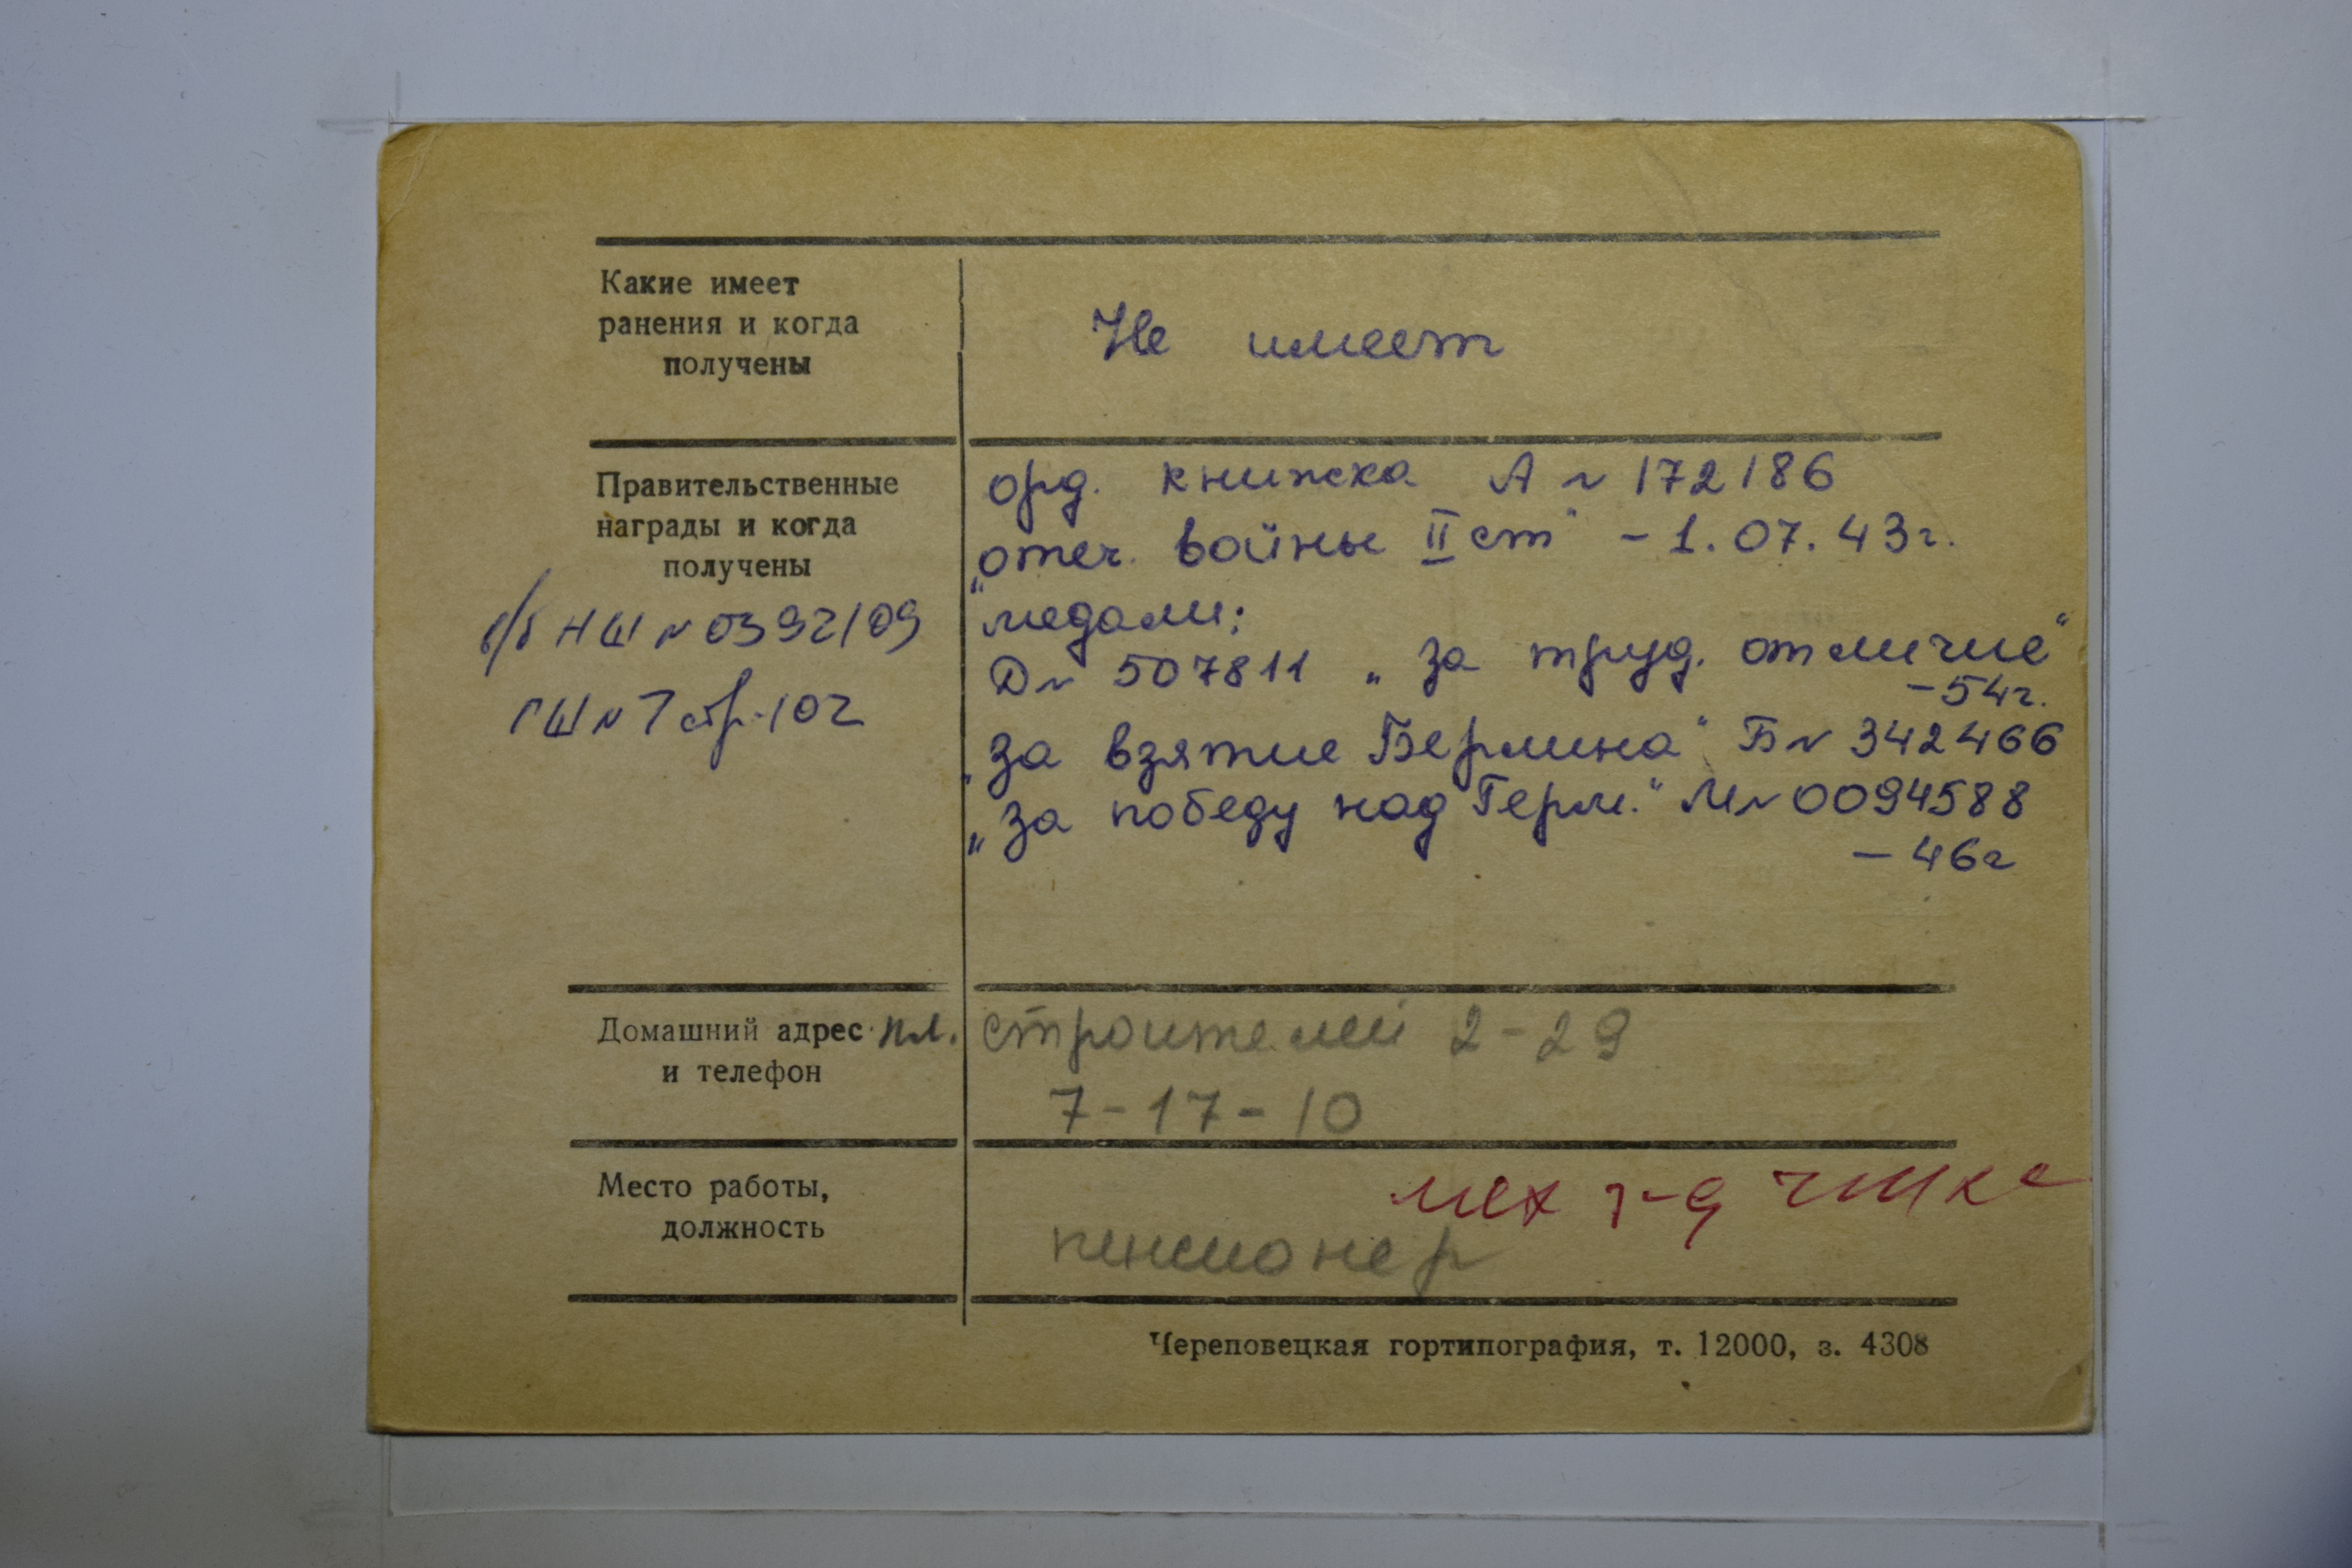 Какие имеет
ранения и когда
получены
Не имеет
Правительственные
награды и когда
получены
б/б НШ № 0392109
ГШ № 7 стр. 102
орд. книжка А № 172186
„отеч. войны II ст" - 1.07.43г.
медали:
Д № 507811 „за труд. отличие"
- 54г.
„за взятие Берлина" Б № 342466
„за победу над Герм." М № 0094588
- 46г
Домашний адрес
и телефон
пл. строителей 2-29
7-17-10
Место работы,
должность
мех з-д
пенсионер
Череповецкая гортипография, т. 12000, з. 4308